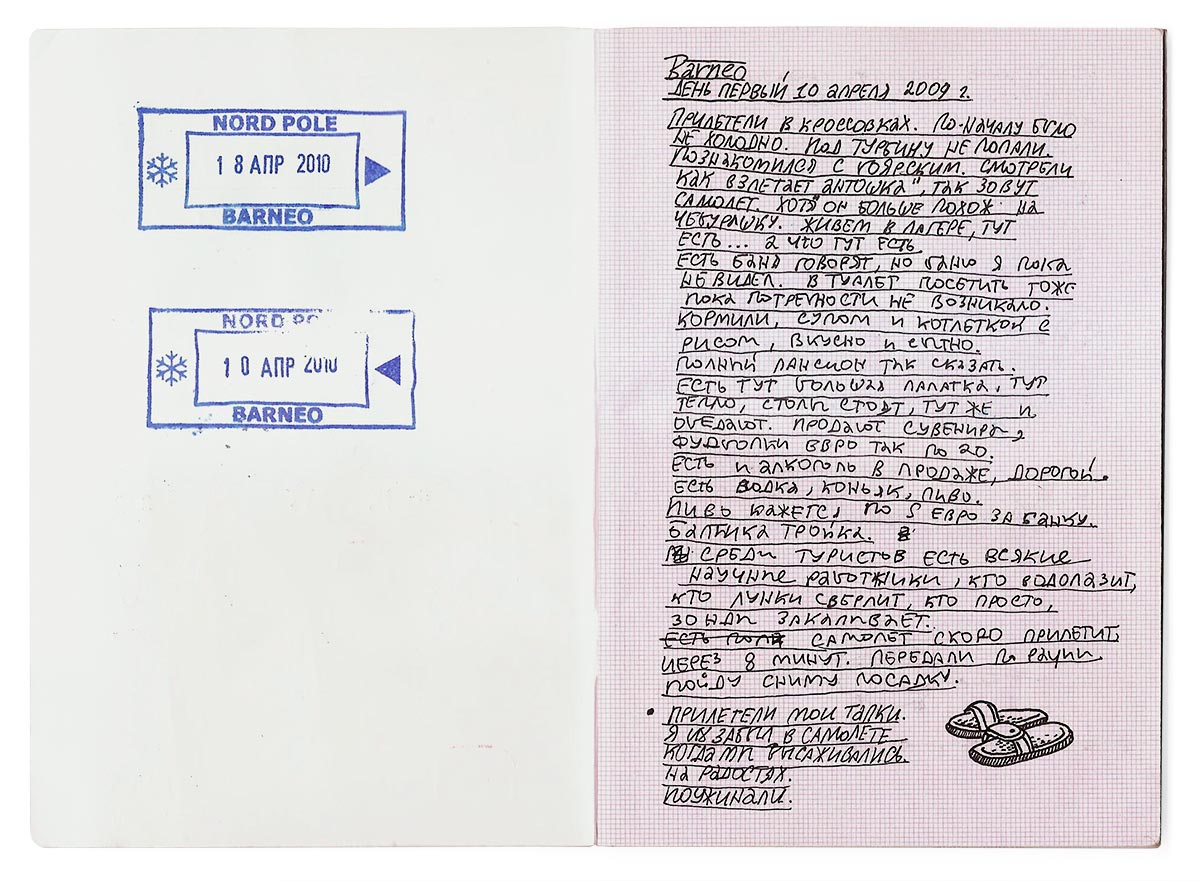 NORD POLE
18 АПР 2010
BARNEO
NORD PO
10 АПР 2010
BARNEO
Barneo
ДЕНЬ ПЕРВЫЙ 10 АПРЕЛЯ 2009 г.
ПРИЛЕТЕЛИ В КРОССОВКАХ. ПО-НАЧАЛУ БЫЛО
НЕ ХОЛОДНО. ПОД ТУРБИНУ НЕ ПОПАЛИ.
ПОЗНАКОМИЛСЯ С БОЯРСКИМ. СМОТРЕЛИ
КАК ВЗЛЕТАЕТ АНТОШКА", ТАК ЗОВУТ
САМОЛЕТ. ХОТЯ ОН БОЛЬШЕ ПОХОЖ НА
ЧЕБУРАШКУ. ЖИВЕМ В ЛАГЕРЕ, ТУТ
ЕСТЬ... А ЧТО ТУТ ЕСТЬ.
ЕСТЬ БАНЯ ГОВОРЯТ, НО БАНЮ Я ПОКА
НЕ ВИДЕЛ. В ТУАЛЕТ ПОСЕТИТЬ ТОЖЕ
ПОКА ПОТРЕБНОСТИ НЕ ВОЗНИКАЛО.
КОРМИЛИ, СУПОМ И КОТЛЕТКОЙ С
РИСОМ, ВКУСНО И СЫТНО.
ПОЛНЫЙ ПАНСИОН ТАК СКАЗАТЬ.
ЕСТЬ ТУТ БОЛЬШАЯ ПАЛАТКА, ТУТ
ТЕПЛО, СТОЛЫ СТОЯТ, ТУТ ЖЕ И
ОБЕДАЮТ. ПРОДАЮТ СУВЕНИРЫ,
ФУДБОЛКИ ЕВРО ТАК ПО 20.
ЕСТЬ И АЛКОГОЛЬ В ПРОДАЖЕ, ДОРОГОЙ.
ЕСТЬ ВОДКА, КОНЬЯК, ПИВО.
ПИВО КАЖЕТСЯ ПО 5 ЕВРО ЗА БАНКУ.
БАЛТИКА ТРОЙКА.
СРЕДИ ТУРИСТОВ ЕСТЬ ВСЯКИЕ
НАУЧНЫЕ РАБОТНИКИ, КТО ВОДОЛАЗИТ,
КТО ЛУНКИ СВЕРЛИТ, КТО ПРОСТО,
ЗОНДЫ ЗАКАЛИВАЕТ.
ЕСТЬ САМОЛЕТ СКОРО ПРИЛЕТИТ,
ЧЕРЕЗ 8 МИНУТ. ПЕРЕДАЛИ ПО РАЦИИ
ПОЙДУ СНИМУ ПОСАДКУ.
• ПРИЛЕТЕЛИ МОИ ТАПКИ.
Я ИХ ЗАБЫЛ В САМОЛЕТЕ
КОГДА МЫ ВЫСАЖИВАЛИСЬ.
НА РАДОСТЯХ.
ПОУЖИНАЛИ.